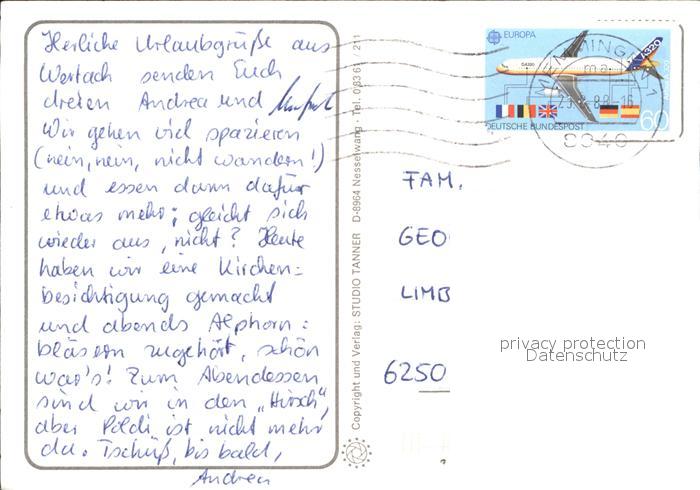 Herliche Urlaubsgrüße aus
Wertach senden Euch
dreien Andrea und
Wir gehen viel spazieren
(nein, nein, nicht wandern!)
und essen dann dafür
etwas mehr; gleicht sich
wieder aus, nicht? Heute
haben wir eine Kirchen=
besichtigung gemacht
und abends Alphorn=
bläsern zugehört, schön
war's! Zum Abendessen
sind wir in den "Hirsch",
aber Poldi ist nicht mehr
da. Tschüß, bis bald,
Andrea
Copyright und Verlag: STUDIO TANNER D-8964 Nesselwang · Tel. 08361/211
EUROPA
A320
DEUTSCHE BUNDESPOST
60
MEMMINGEN 1
8940
FAM.
GEO
LIMB
6250
privacy protection
Datenschutz